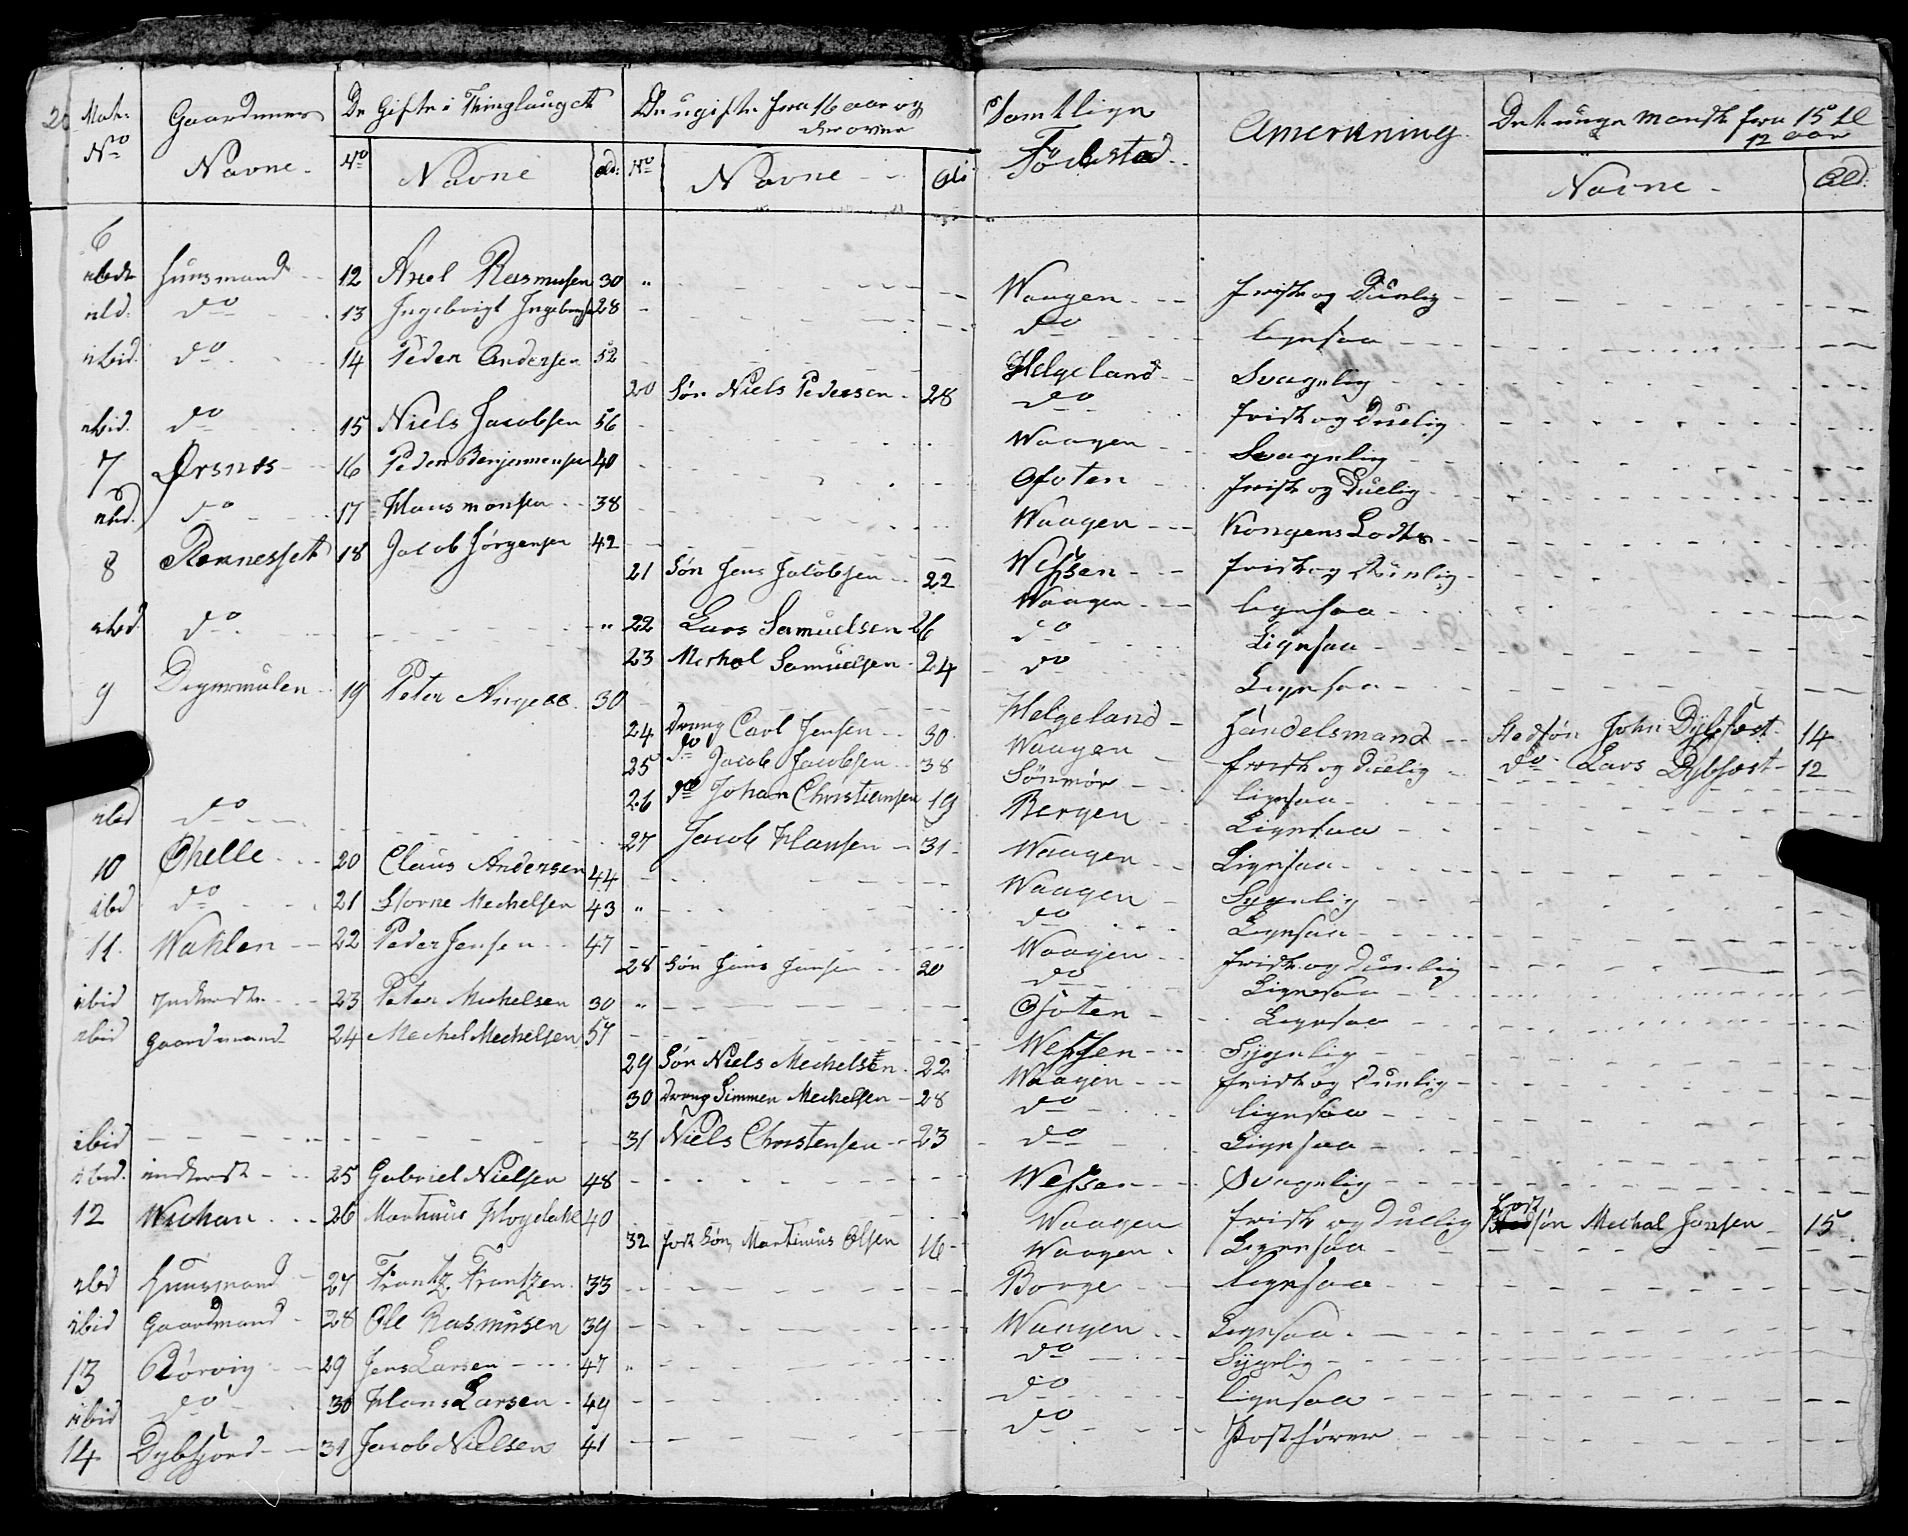 Matr: No Gaardenes Navne. De Gifte i Thinglauget No Navne Ald: De ugifte fra 16 aar og derover No Navne Ald: Samtlige Födested Anmerkning De unge Mandk: fra 15 til 12 aar Navne Ald:
6
ibid Huusmand 12 Axel Rasmusen 30 " Waagen frisk og Duelig
ibid: do 13 Ingebrigt 28 do ligesaa
ibid. do 14 Peder Andersen 52 Helgeland Svagelig
20 Søn Niels Pedersen 28 do frisk og Duelig
ibid. do 15 Niels Jacobsen 56 Waagen Svagelig
7 Ørsnes 16 Peder Benjemensen 40 Ofoten frisk og Duelig
ibid. do 17 Hans Monsen 38 Waagen Kongens Lods
8 Rennesset 18 Jacob Jörgensen 42 Wessen frisk og Duelig
21 Søn Jens Jacobsen 22 Waagen ligesaa
ibid do " 22 Lars Samuelsen 26 do Ligesaa
23 Michal Samuelsen 24 do Ligesaa
9 Digermulen 19 Peter Angell 30 Helgeland Handelsmand Stedsøn John Dybfæst 14
24 Dreng Carl Jensen 30 Waagen frisk og Duelig do Lars Dybfæst 12
25 do Jacob Jacobsen 38 Sönmör ligesaa
26 do Johan Christiansen 19 Bergen Ligesaa
ibid do 27 Jacob Hansen 31 Waagen Ligesaa
10 Ohelle 20 Claus Andersen 44 Waagen Sygelig
ibid do 21 Storne Mechelsen 43 " do Ligesaa
11. Wahlen 22 Peder Jensen 47 Waagen frisk og Duelig
28 Søn Jens Jensen 20 do Ligesaa
ibid Inderste 23 Peter Michelsen 30 " Ofoten Ligesaa
ibid Gaardmand 24 Mechel Mechelsen 57 Wessen Sygelig
29 Søn Niels Mechelsen 22 Waagen frisk og Duelig
30 Dreng Simmen Mechelsen 28 do ligesaa
ibid 31 Niels Christensen 23 do Ligesaa
ibid. inderst 25 Gabriel Nielsen 48 Wessen Svagelig
12 26 Martinus 40 Waagen frisk og Duelig Fostsøn Mechal Jensen 15
32 fost Søn, Martinius Olsen 16 Waagen Ligesaa
ibid Huusmand 27 Frantz Frantzen 33 Borge ligesaa
ibid Gaardmand 28 Ole Rasmusen 39 Waagen Ligesaa
13 Rörvig 29 Jens Larsen 47 " do Sygelig
ibid do 30 Hans Larsen 49 do ligesaa
14 Dybfjord 31 Jacob Nielsen 41 do Postförer